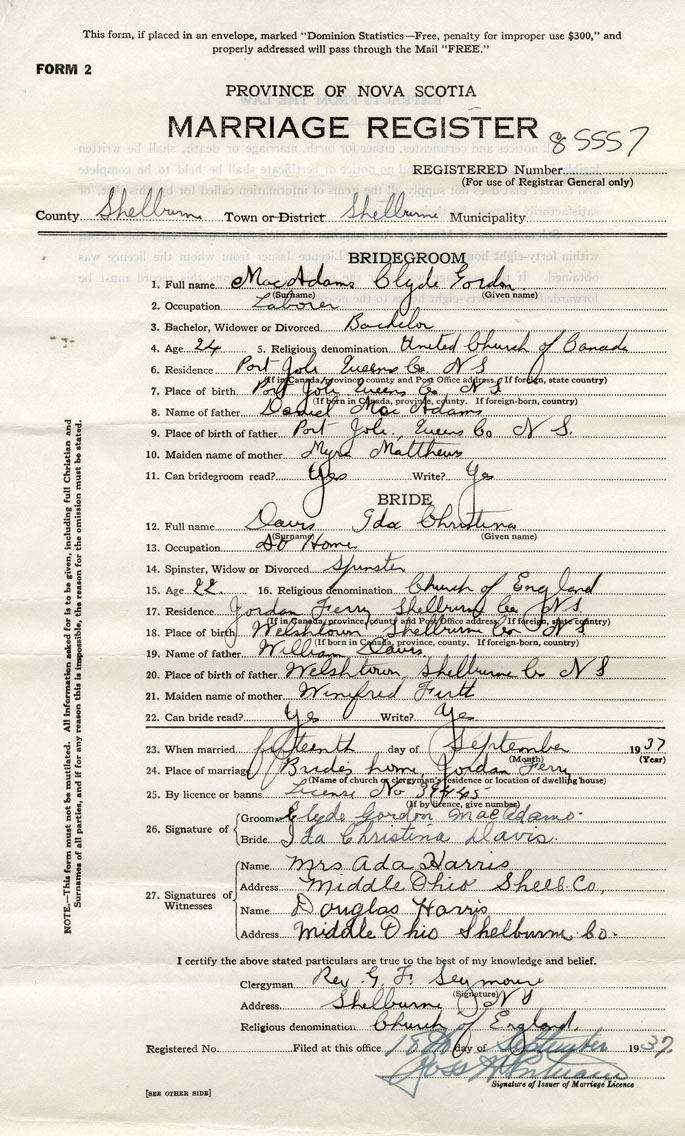 This form, if placed in an envelope, marked "Dominion Statistics—Free, penalty for improper use $300," and
properly addressed will pass through the Mail "FREE."
FORM 2
PROVINCE OF NOVA SCOTIA
MARRIAGE REGISTER 85557
REGISTERED Number
(For use of Registrar General only)
County Shelburne Town or District Shelburne Municipality
BRIDEGROOM
1. Full name MacAdams Clyde Gordon
(Surname) (Given name)
2. Occupation Laborer
3. Bachelor, Widower or Divorced Bachelor
4. Age 24 5. Religious denomination United Church of Canada
6. Residence Port Joli Queens Co. N S
(If in Canada, province county and Post Office address. If foreign, state country)
7. Place of birth Port Joli Queens Co. N S
(If born in Canada, province, county. If foreign-born, country)
8. Name of father Daniel MacAdams
9. Place of birth of father Port Joli, Queens Co N S.
10. Maiden name of mother Myra Matthews
11. Can bridegroom read? Yes Write? Yes
BRIDE
12. Full name Davis Ida Christina
(Surname) (Given name)
13. Occupation At Home
14. Spinster, Widow or Divorced Spinster
15. Age 22 16. Religious denomination Church of England
17. Residence Jordan Ferry Shelburne Co. N S
(If in Canada, province, county and Post Office address. If foreign, state country)
18. Place of birth Welshtown Shelburne Co N S
(If born in Canada, province, county. If foreign-born, country)
19. Name of father William Davis
20. Place of birth of father Welshtown, Shelburne Co N S
21. Maiden name of mother Winifred Firth
22. Can bride read? Yes Write? Yes
23. When married fifteenth day of September 1937
(Month) (Year)
24. Place of marriage Bride's home, Jordan Ferry
(Name of church or clergyman's residence or location of dwelling house)
25. By licence or banns License No
(If by licence, give number)
26. Signature of
Groom Clyde Gordon MacAdams.
Bride Ida Christina Davis.
27. Signatures of Witnesses
Name Mrs Ada Harris
Address Middle Ohio Shell. Co.,
Name Douglas Harris
Address Middle Ohio Shelburne Co.
I certify the above stated particulars are true to the best of my knowledge and belief.
Clergyman Rev. G. F. Seymour
(Signature)
Address Shelburne N S
Religious denomination Church of England.
Registered No. Filed at this office 18th day of September 1937.
Signature of Issuer of Marriage Licence
[SEE OTHER SIDE]
NOTE.—This form must not be mutilated. All information asked for is to be given, including full Christian and
Surnames of all parties, and if for any reason this is impossible, the reason for the omission must be stated.